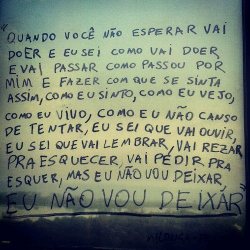 "QUANDO VOCÊ NÃO ESPERAR VAI
DOER E EU SEI COMO VAI DOER
E VAI PASSAR COMO PASSOU POR
MIM E FAZER COM QUE SE SINTA
ASSIM, COMO EU SINTO, COMO EU VEJO,
COMO EU VIVO, COMO EU NÃO CANSO
DE TENTAR, EU SEI QUE VAI OUVIR,
EU SEI QUE VAI LEMBRAR, VAI REZAR
PRA ESQUECER, VAI PEDIR PRA
ESQUER, MAS EU NÃO VOU DEIXAR,
EU NÃO VOU DEIXAR